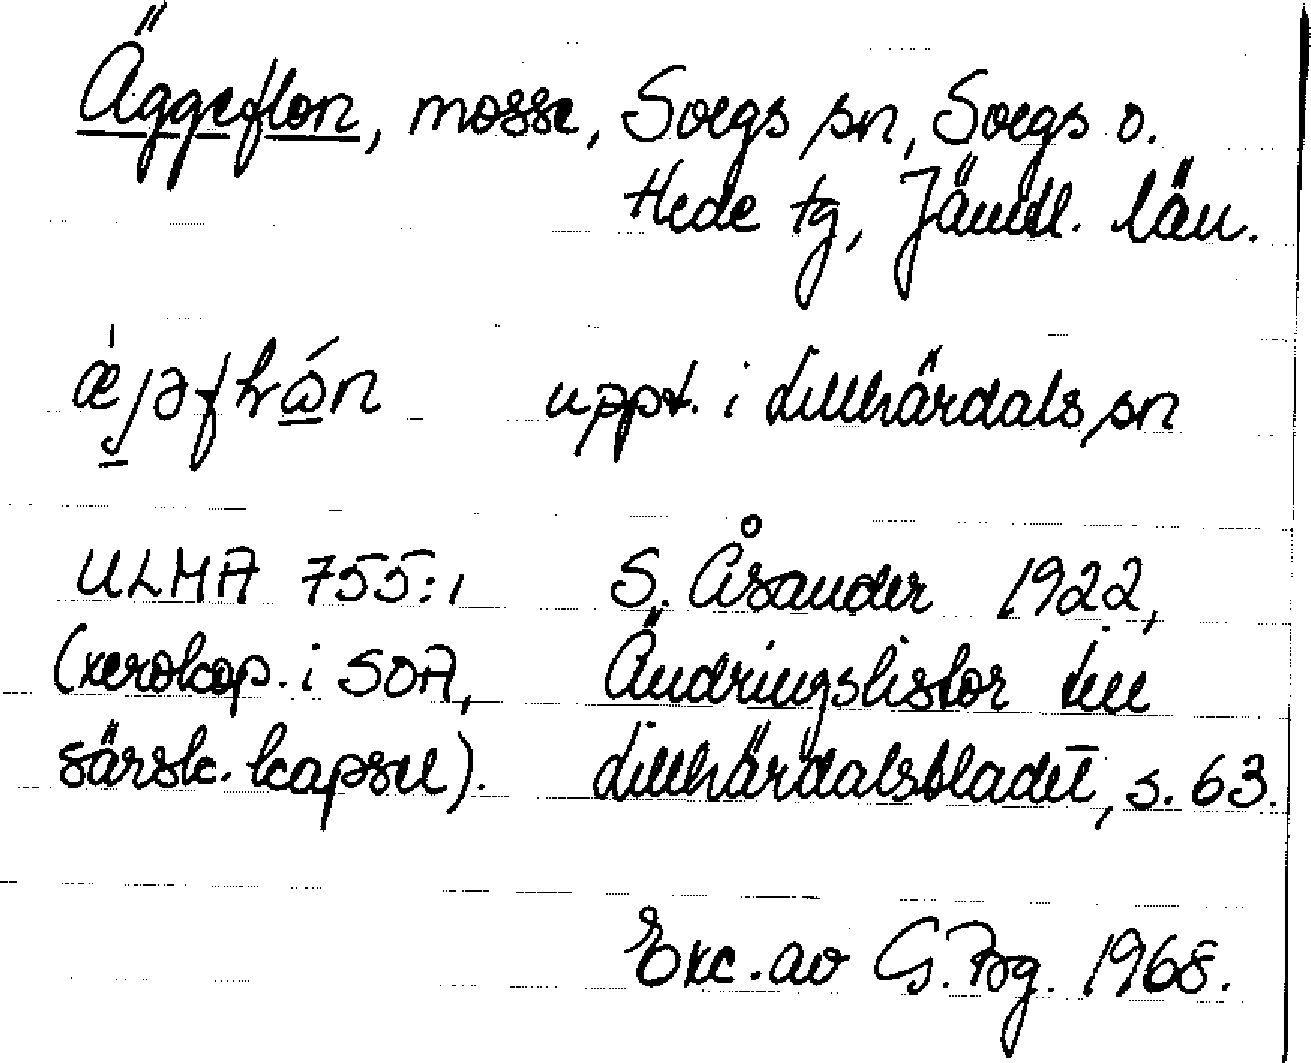 Äggeflon, mosse, Svegs sn, Svegs o.
Hede tg, Jämtl. län.
uppt. i Lillhärdals sn
ULMA 755:1 S. Åsander 1922,
(xerokop. i SOA, Ändringslistor till
särsk. kapsel). Lillhärdalsbladet, s. 63.
Exc. av G. 1968.